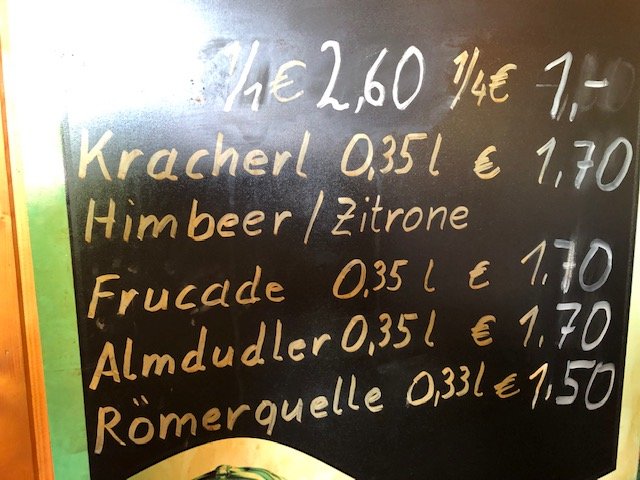 1/1 € 2,60 1/4 € 1,-
Kracherl 0,35 l € 1,70
Himbeer / Zitrone
Frucade 0,35 l € 1,70
Almdudler 0,35 l € 1,70
Römerquelle 0,33 l € 1,50